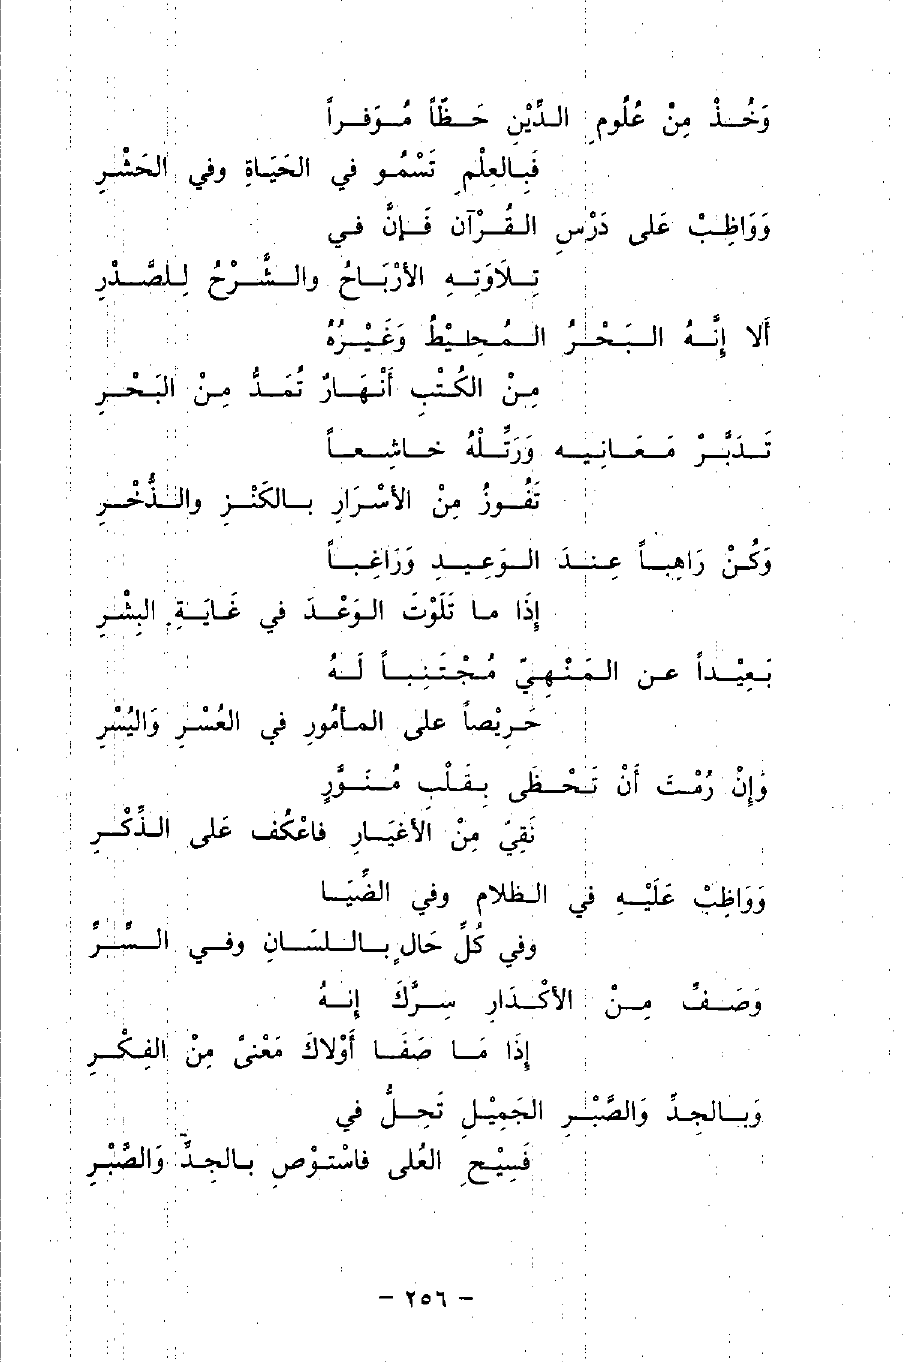 وَخُذْ مِنْ عُلُومِ الدِّيْنِ حَظّاً مُوَفراً
فَبِالعِلْمِ تَسْمُو في الحَيَاةِ وفي الحَشْرِ
وَوَاظِبْ عَلى دَرْسِ القُرْآن فَإنَّ في
تِلَاوَتِهِ الأرْبَاحُ والشَّرْحُ لِلصَّدْرِ
أَلا إنَّهُ البَحْرُ المُحِيْطُ وَغَيْرُهُ
مِنْ الكُتْبِ أَنْهَارٌ تُمَدُّ مِنْ البَحْرِ
تَدَبَّرْ مَعَانِيه وَرَتِّلْهُ خاشِعاً
تَفُوزُ مِنْ الأسْرَارِ بالكَنْزِ والذُّخْرِ
وَكُنْ رَاهِباً عِندَ الوَعِيدِ وَرَاغِباً
إذَا ما تَلَوْتَ الوَعْدَ في غَايَةِ البِشْرِ
بَعِيْداً عن المَنْهِيّ مُجْتَنِباً لَهُ
حَرِيْصاً على المأمُورِ في العُسْرِ وَاليُسْرِ
وَإنْ رُمْتَ أَنْ تَحْظَى بِقَلْبٍ مُنَوَّرٍ
نَقِيّ مِنْ الأغيَارِ فاعْكُف عَلى الذِّكْرِ
وَوَاظِبْ عَلَيْهِ في الظلام وفي الضِّيَا
وفي كُلِّ حَالٍ باللسَانِ وفي السِّرِّ
وَصَفِّ مِنْ الأكْدَارِ سِرَّكَ إنهُ
إذَا مَا صَفَا أَوْلاكَ مَعْنىً مِنْ الفِكْرِ
وَبالجِدِّ وَالصَّبْرِ الجَمِيْلِ تَحِلُّ في
فَسِيْحِ العُلى فاسْتوْصِ بالجِدِّ وَالصَّبْرِ
- ٢٥٦ -